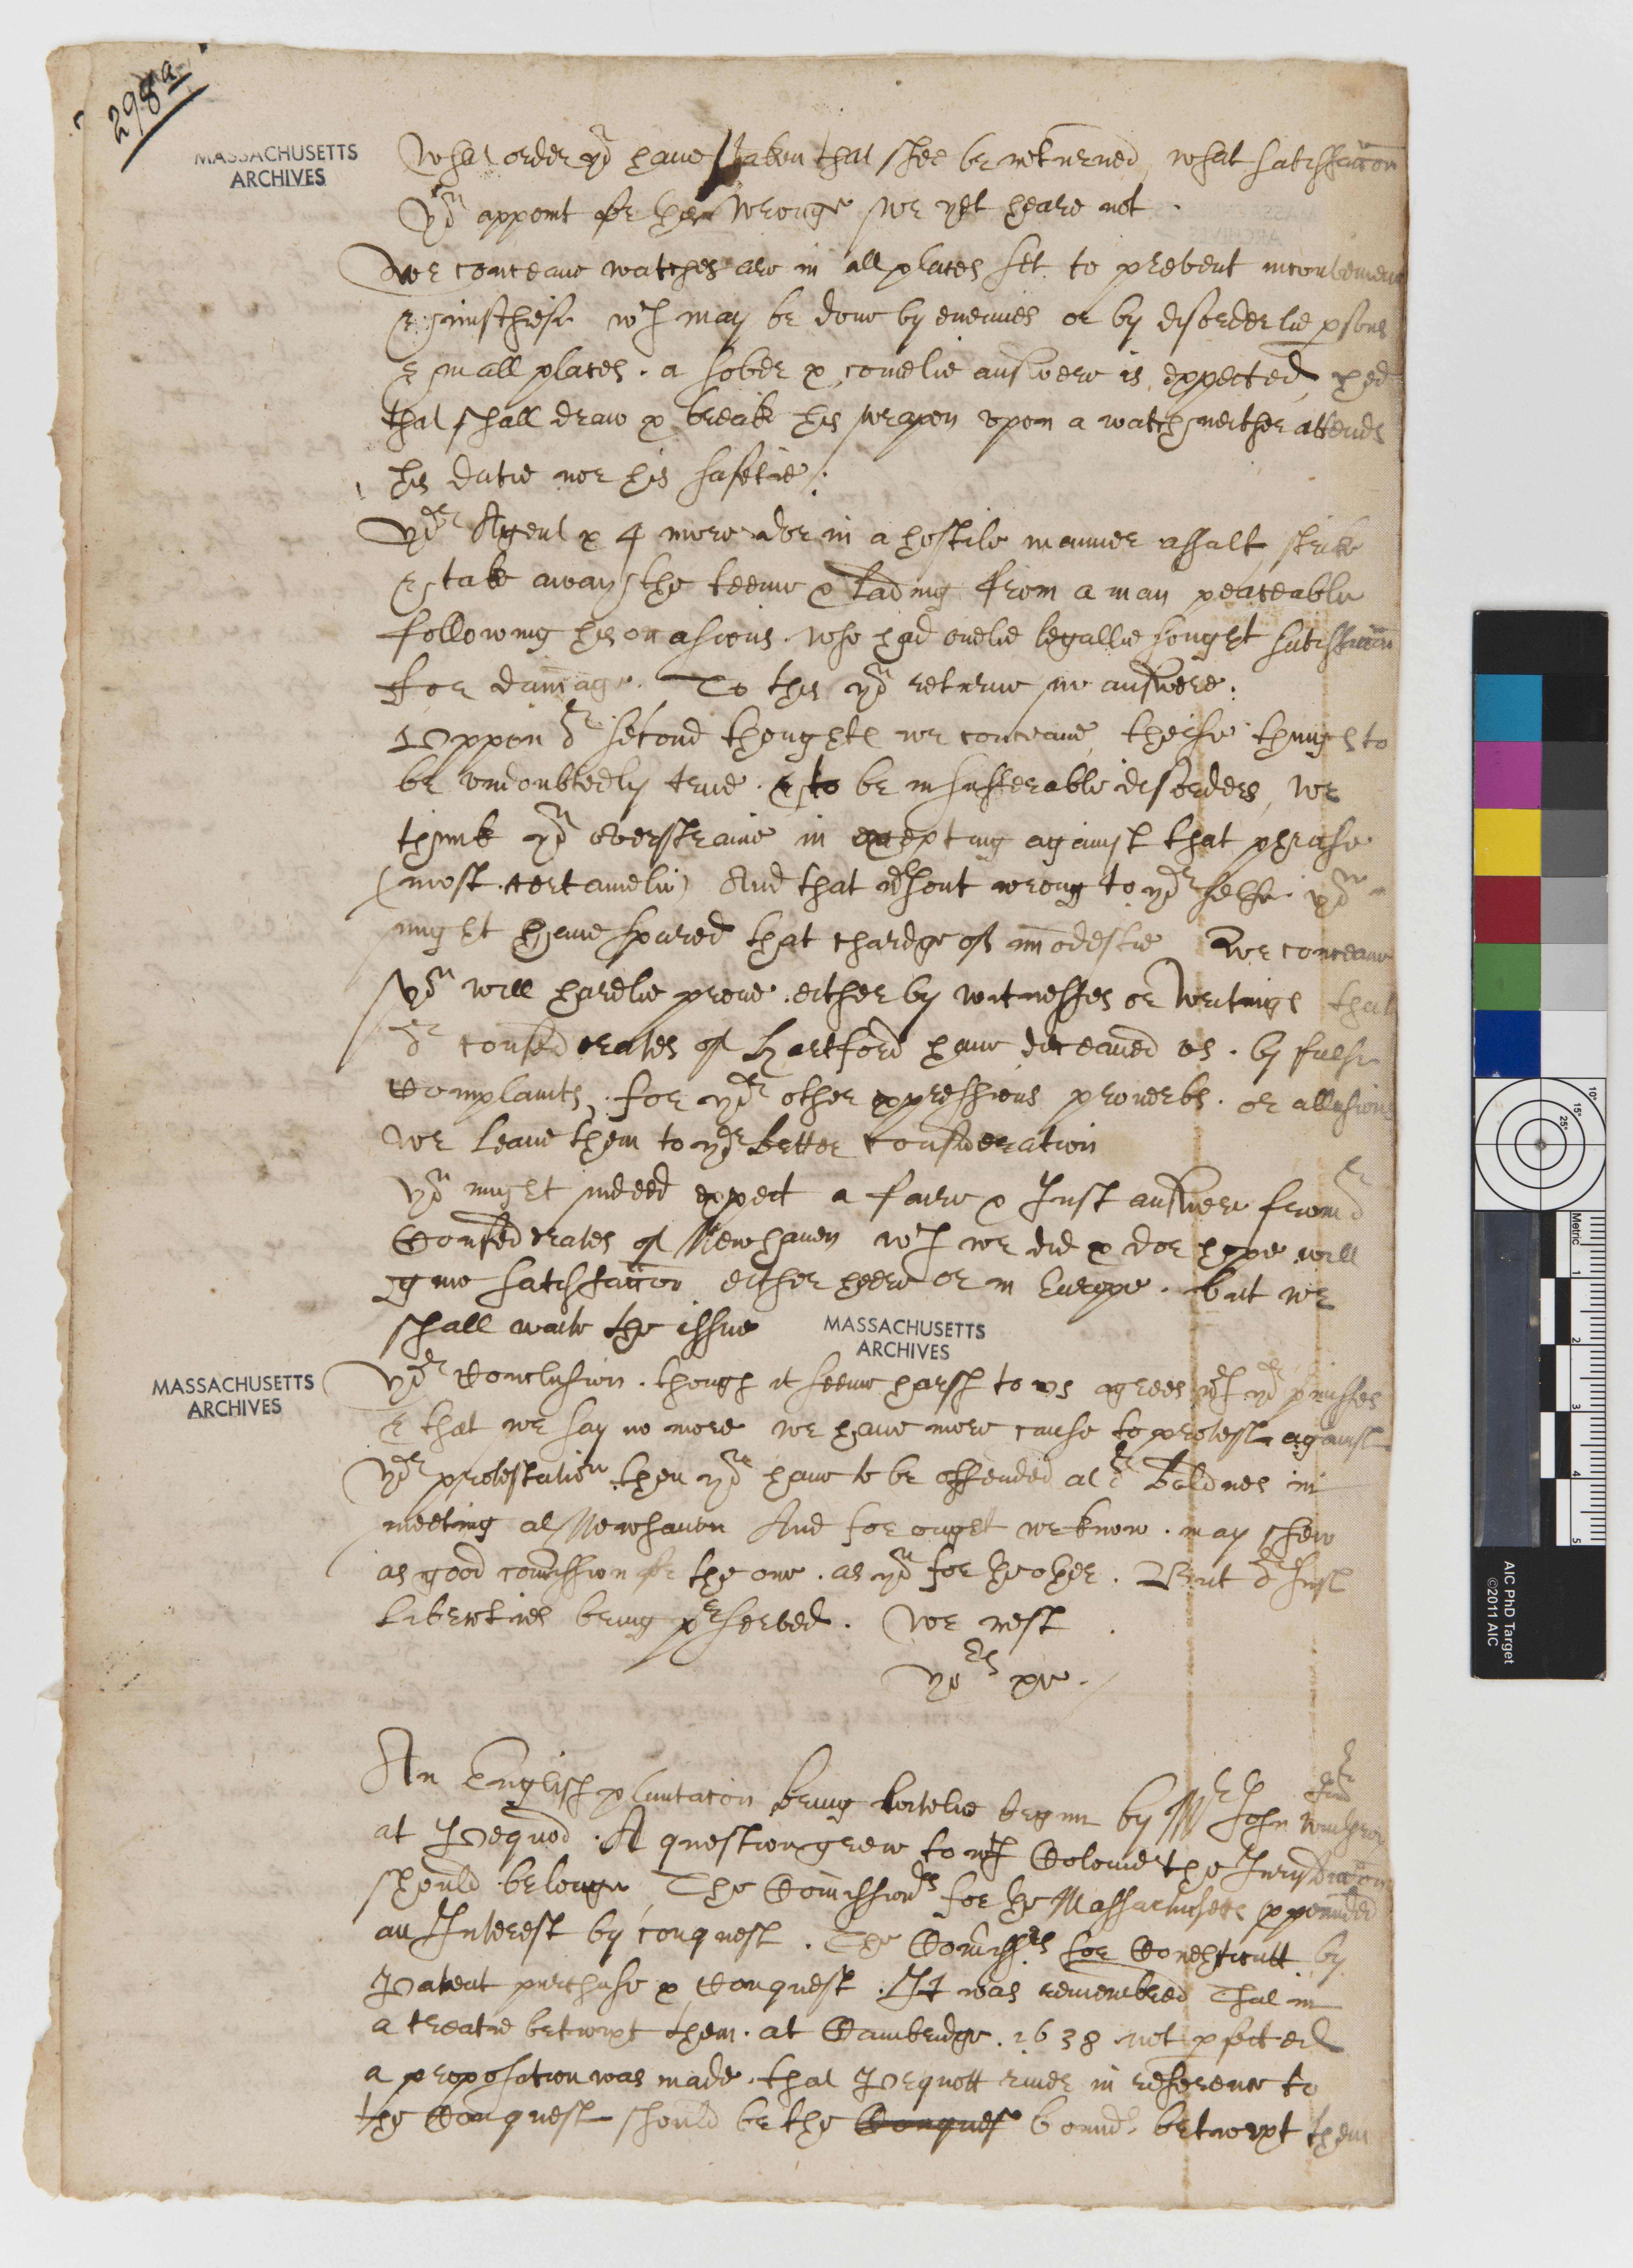 298a
MASSACHUSETTS
ARCHIVES
What order yor have taken that shee be returned, what satisfaccon
yow appoint for her wronge we yet heare not.
Wee conceaue watches are in all places set to prevent inconvenienc
& mischiefe wch may be done by enemies or by disorderlie psons
& in all places. a sober & comelie answere is expected, hee
that shall draw & break his weapon vpon a watch neither attends
his dutie nor his safetie.
yor Agent & 4 more doe in a hostile manner assalt strike
& take away the teeme & lading from a man peaceablie
following his occasions. who had onelie legallie sought satisfaccon
for damage. To this yow returne no answere.
Vppon or second thoughts we conceaue, theise things to
be vndoubtedly true. & to be insufferable disorders, we
think yow overstraine in excepting against that phrase
(most certainelie) And that wthout wrong to yor selfe yow
might haue spared that chardge of imodestie We conceaue
yow will hardlie proue either by witnesses or writings that
or confederates of Hartford haue deceaued vs. by false
Complaints, for yor other expressions proverbs. or allusions
we leaue them to yor better consideration
yow might indeed expect a faire & Just answere from or
Confederates of Newhaven wch we did & doe hope will
giue satisfaccon either heere or in Europe. but we
shall waite the issue
MASSACHUSETTS
ARCHIVES
MASSACHUSETTS
ARCHIVES
yor Conclusion. though it seeme harsh to vs agrees wth yor pmisses
& that we say no more we haue more cause to protest against
yor protestation then yow haue to be offended at or boldnes in
meeting at Newhaven And for ought we know. may shew
as good comission for the one. as yow for the other. But or Just
Liberties being preserved. We rest
yors &c.
An English plantacon being latelie begun by Mr John Winthrop
at Pequod. A question grew to wch Colonie the Jurisdiccon
should belonge The Comissionrs for the Massachusets ppounded
an Interest by conquest. The Comissrs for Conecticutt by
Patent purchase & Conquest. It was remembred That in
a treatie betwixt them. at Cambridge. 1638 not pfected
a proposition was made. that Pequott riuer in reference to
the Conquest should be the Conquest bound. betwixt them